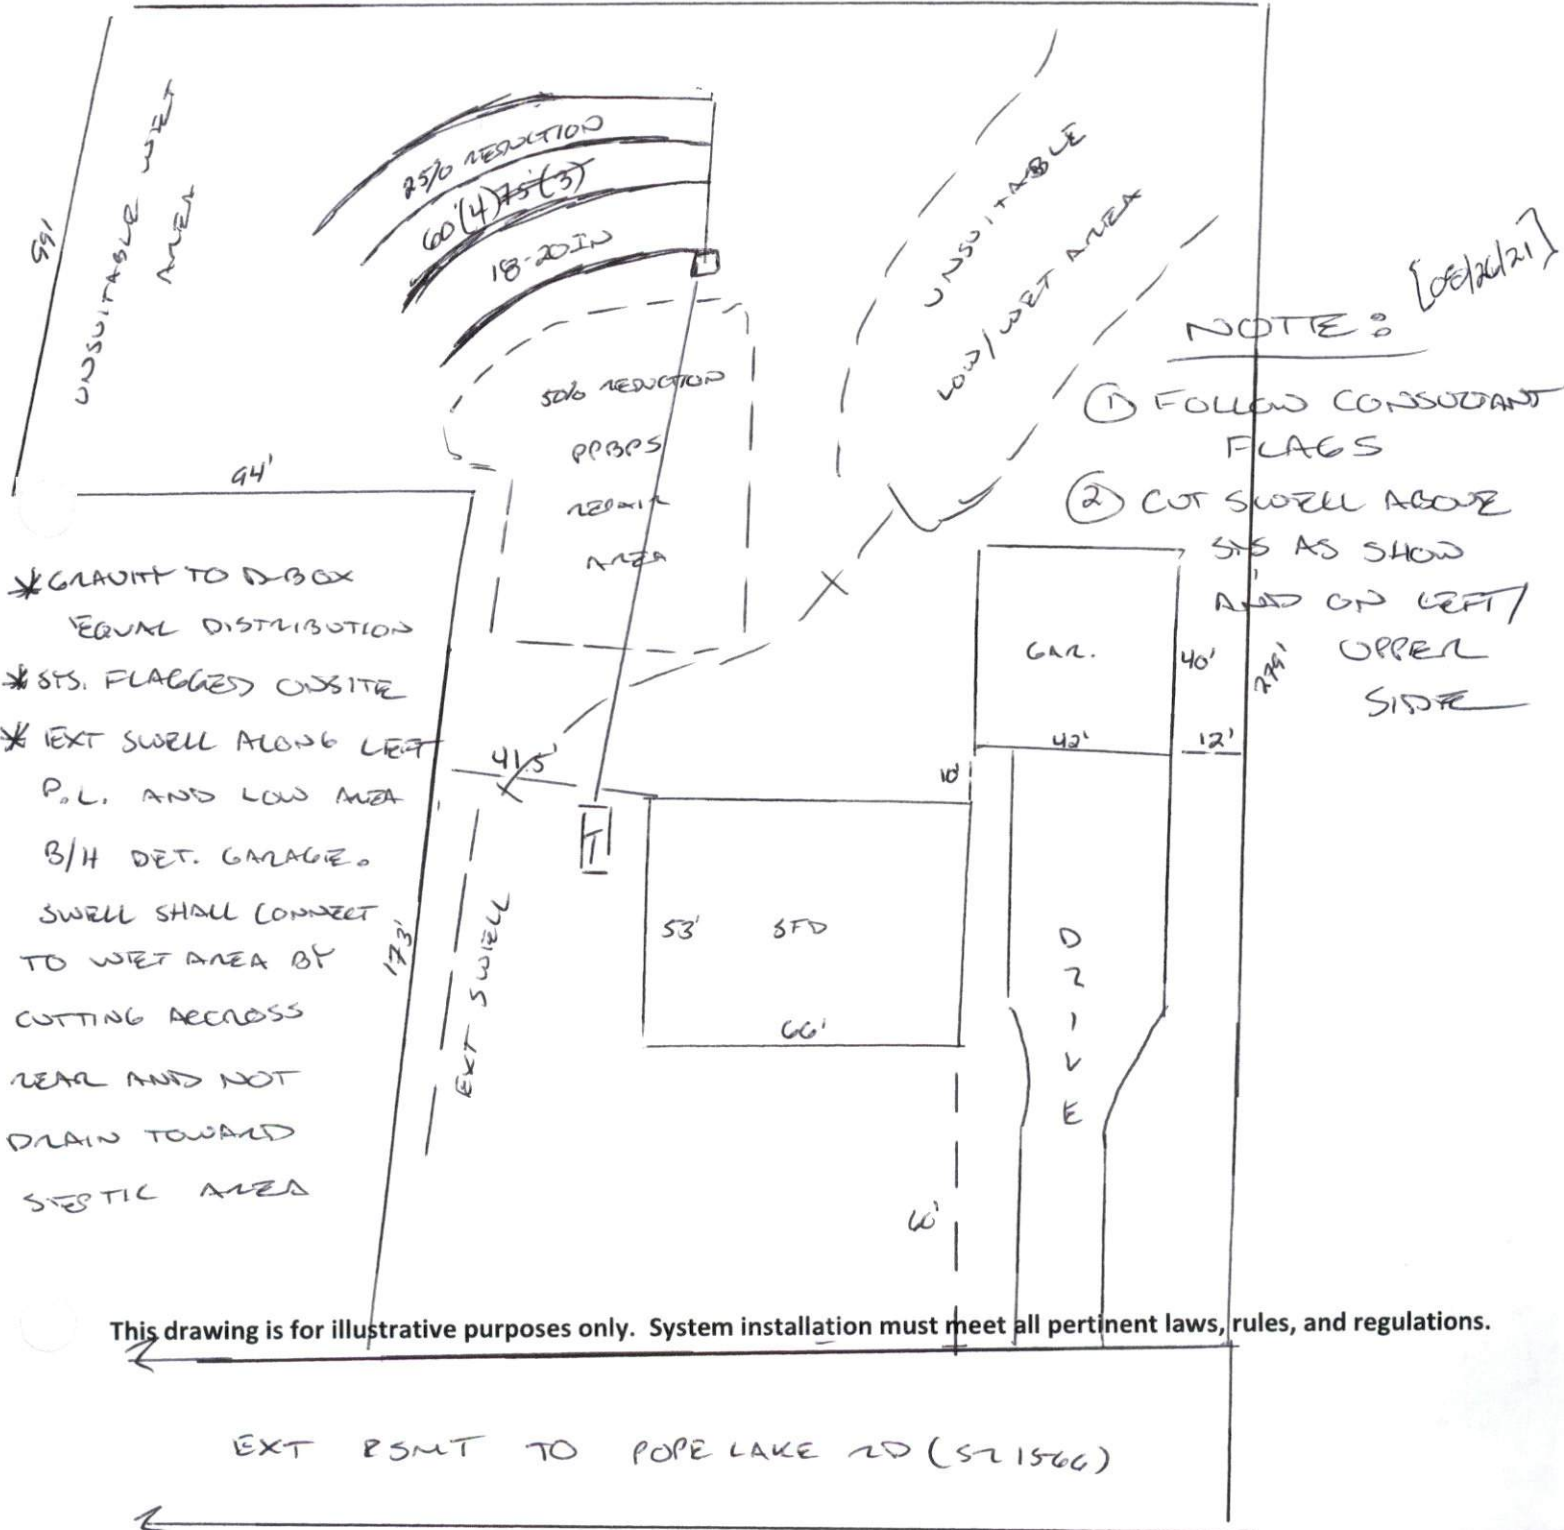 99'
UNSUITABLE WET
AREA
25% REDUCTION
60'(4) 75'(3)
18-20 IN
UNSUITABLE
LOW/WET AREA
[08/26/21]
NOTE:
① FOLLOW CONSULTANT
FLAGS
② CUT SWELL ABOVE
SYS AS SHOW
AND ON LEFT/
UPPER
SIDE
50% REDUCTION
PPBPS
REPAIR
AREA
94'
* GRAVITY TO D-BOX
EQUAL DISTRIBUTION
* SYS. FLAGGED ONSITE
* EXT SWELL ALONG LEFT
P.L. AND LOW AREA
B/H DET. GARAGE.
SWELL SHALL CONNECT
TO WET AREA BY
CUTTING ACCROSS
REAR AND NOT
DRAIN TOWARD
SEPTIC AREA
GAR.
40'
279'
42'
12'
10'
41.5'
T
173'
EXT SWELL
53'
SFD
66'
DRIVE
60'
This drawing is for illustrative purposes only. System installation must meet all pertinent laws, rules, and regulations.
EXT ESMT TO POPE LAKE RD (SR 1566)